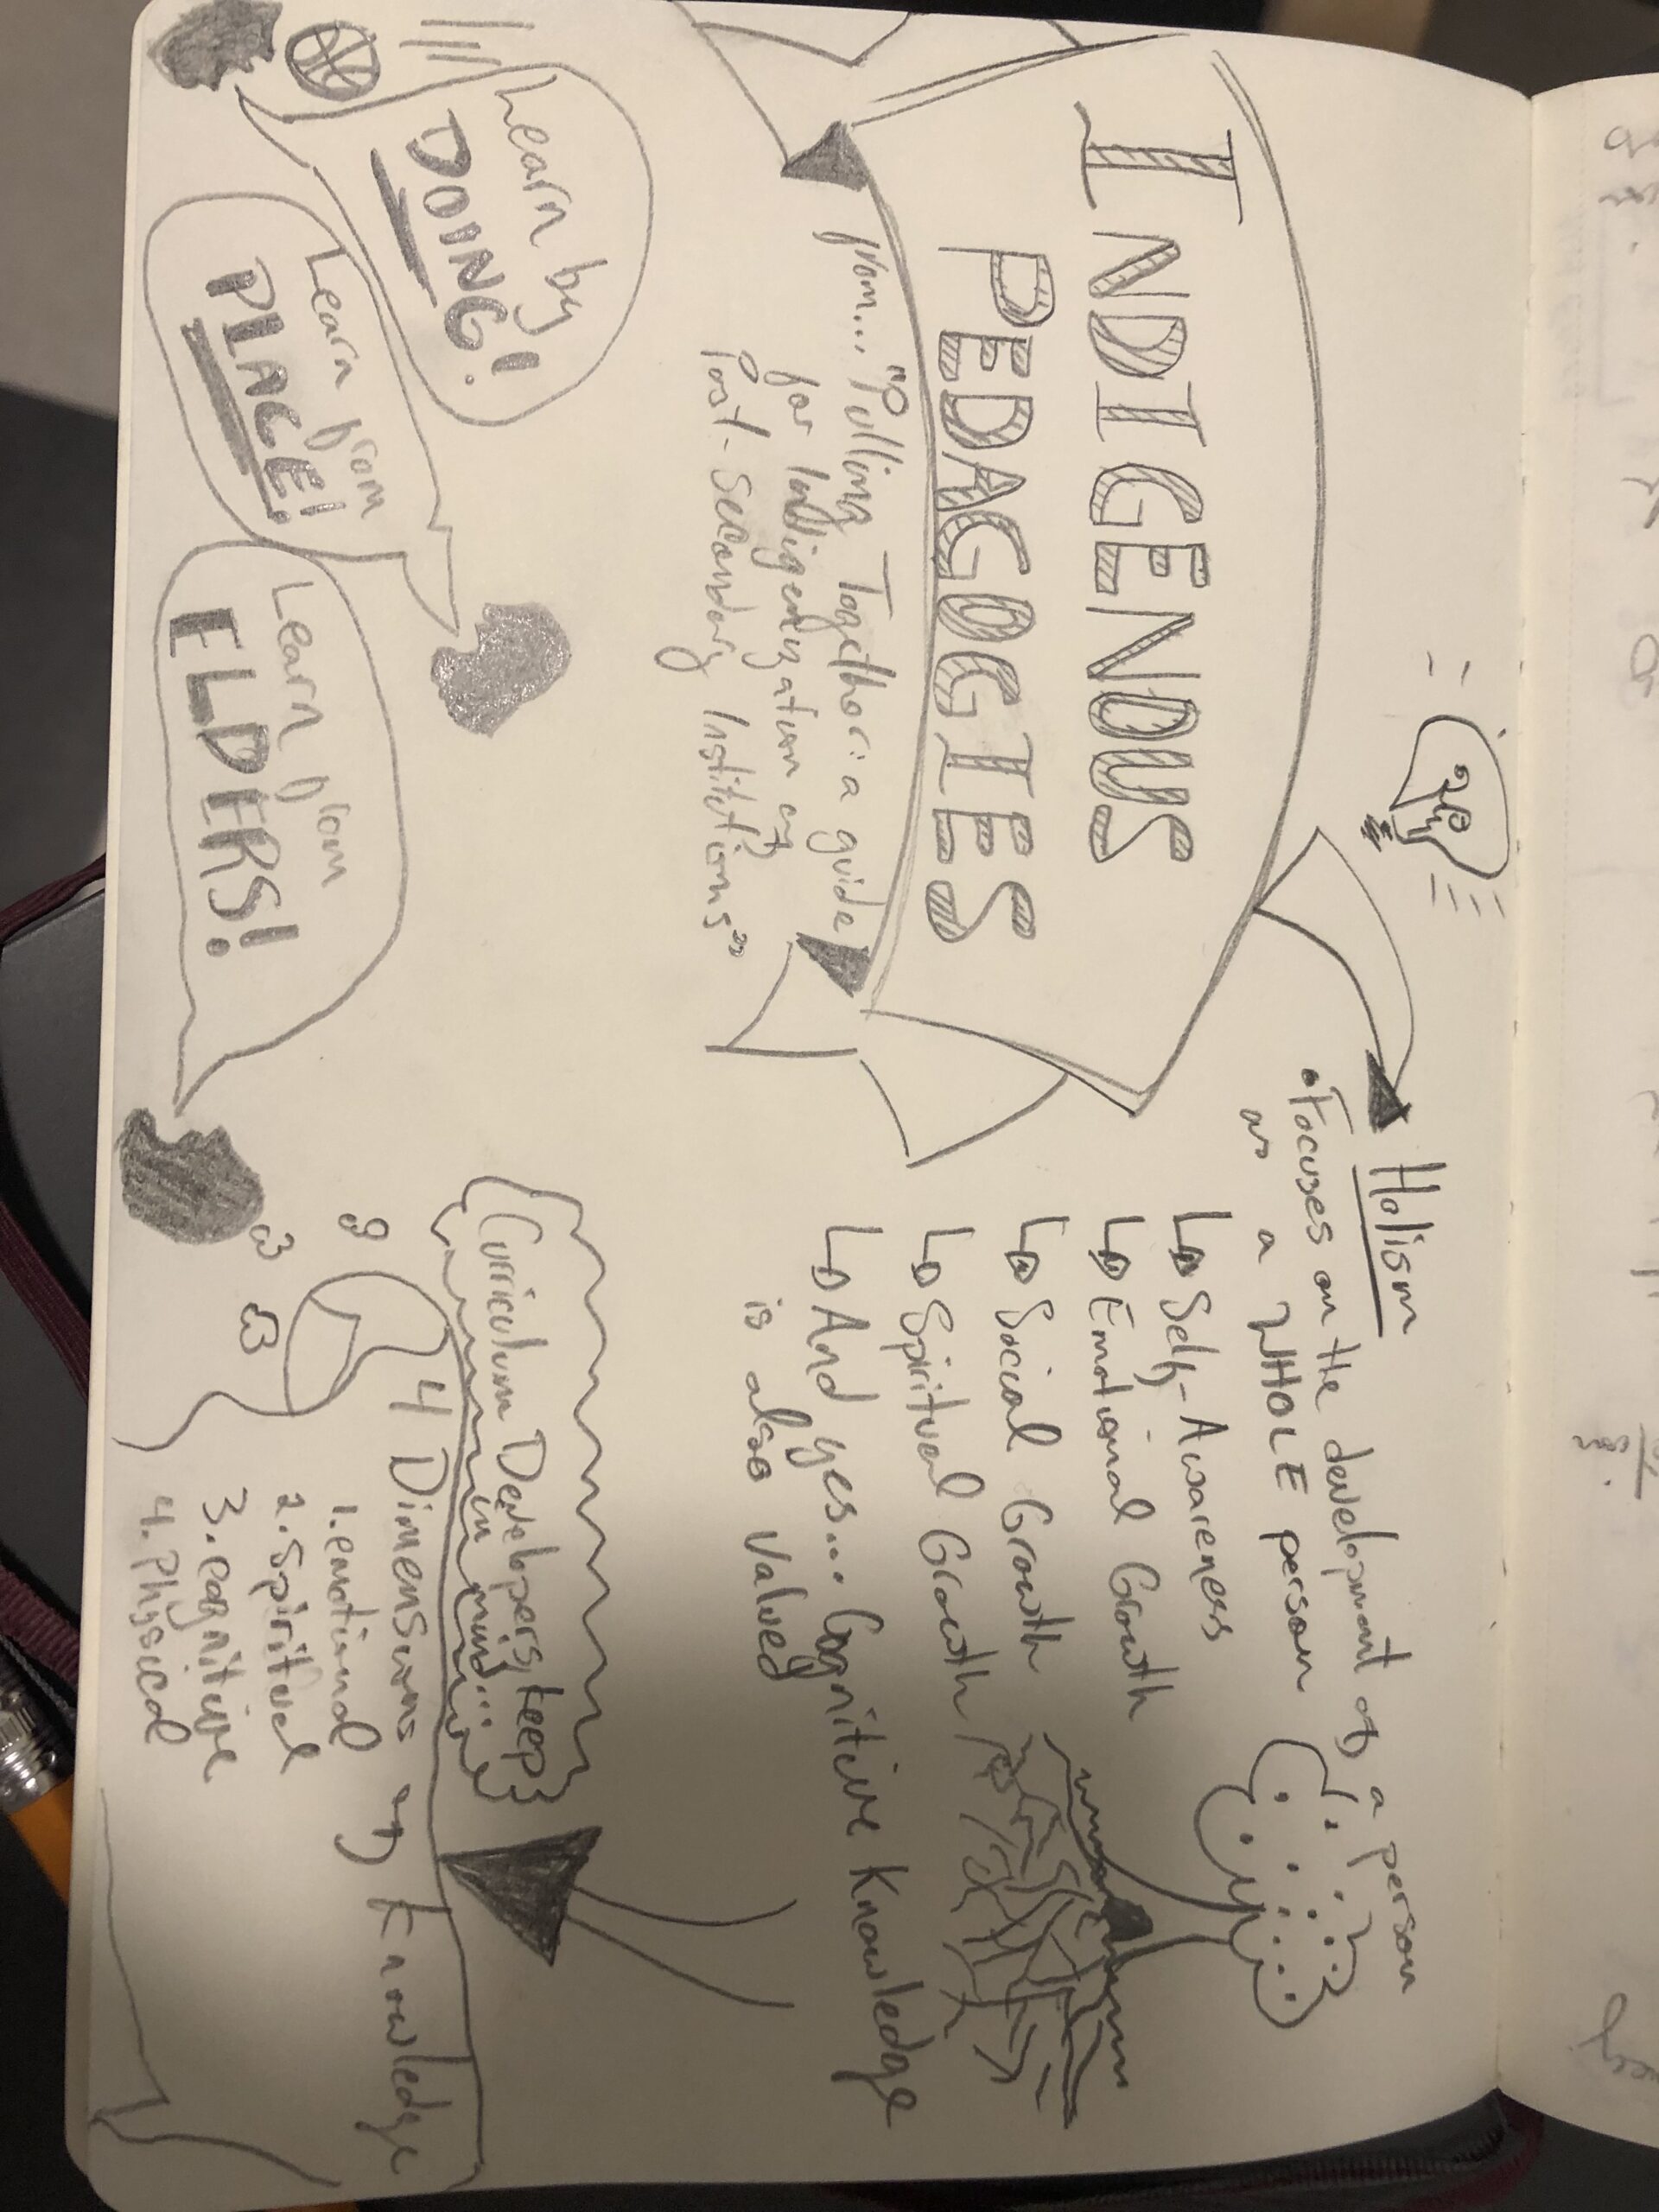 INDIGENOUS
PEDAGOGIES
from... "Pulling Together: a guide
for Indigenization of
Post-Secondary Institutions"
Learn by
DOING!
Learn from
PLACE!
Learn from
ELDERS!
Holism
• Focuses on the development of a person
as a WHOLE person
Self-Awareness
Emotional Growth
Social Growth
Spiritual Growth
And yes... Cognitive Knowledge
is also valued
Curriculum Developers, keep
in mind...
4 Dimensions of Knowledge
1. emotional
2. Spiritual
3. cognitive
4. Physical